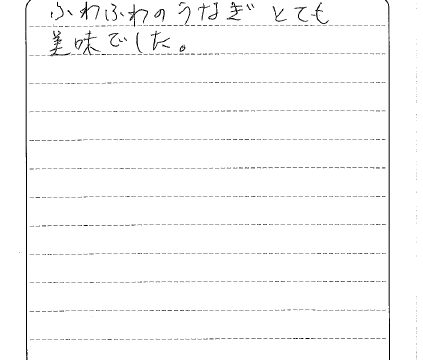 ふわふわのうなぎとても
美味でした。